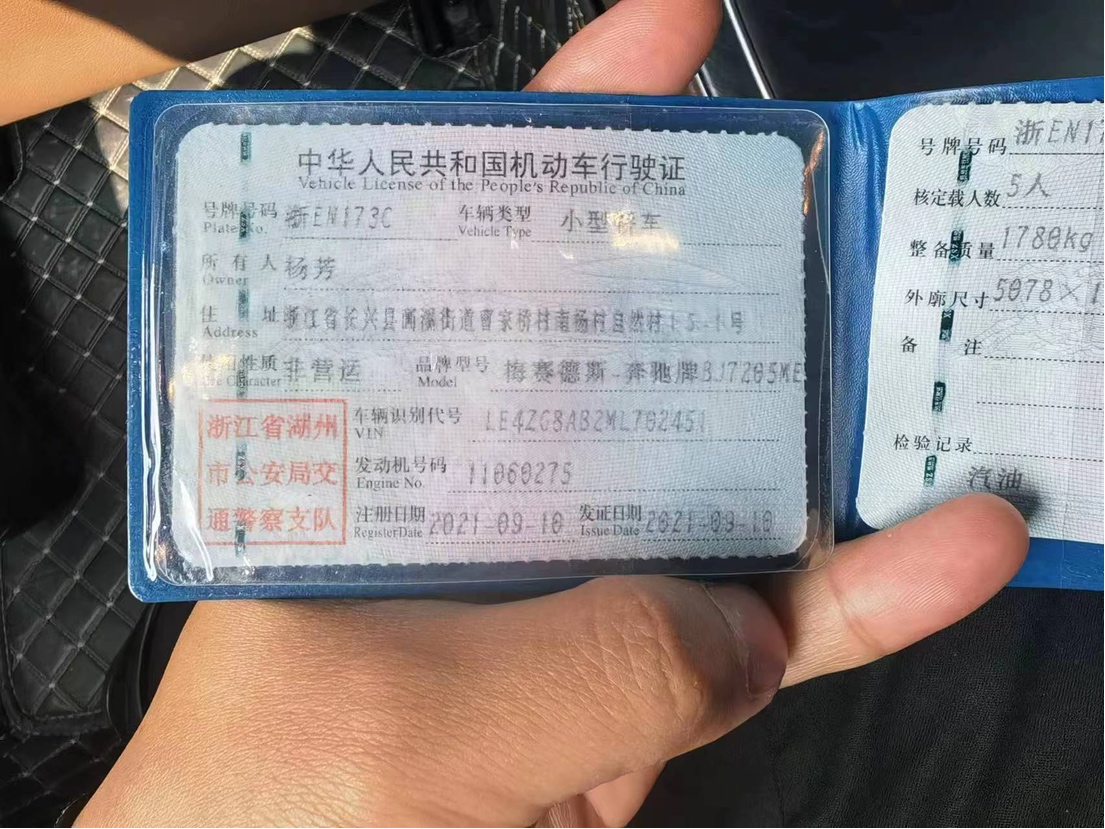 中华人民共和国机动车行驶证
Vehicle License of the People's Republic of China
号牌号码 浙EN173C 车辆类型 小型轿车
Plate No. Vehicle Type
所有人 杨芳
Owner
住址 浙江省长兴县画溪街道曹家桥村南杨村自然村
Address
使用性质 非营运 品牌型号 梅赛德斯-奔驰牌BJ7205ME
Use Character Model
浙江省湖州
市公安局交
通警察支队
车辆识别代号 LE4ZG8AB2ML702451
VIN
发动机号码 11060275
Engine No.
注册日期 2021-09-10 发证日期 2021-09-10
Register Date Issue Date
号牌号码 浙EN17
核定载人数 5人
整备质量 1780kg
外廓尺寸 5078×1
备注
检验记录
汽油